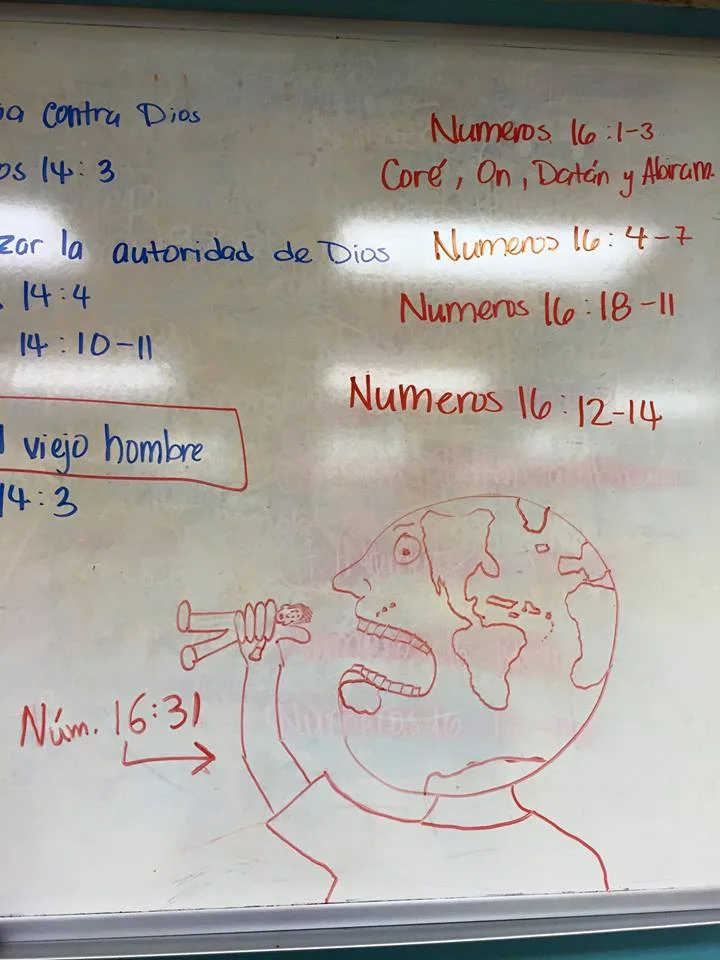 contra Dios
14:3
la autoridad de Dios
14:4
14:10-11
viejo hombre
14:3
Numeros 16:1-3
Coré, On, Datán y Abiram.
Numeros 16:4-7
Numeros 16:18-11
Numeros 16:12-14
Núm. 16:31